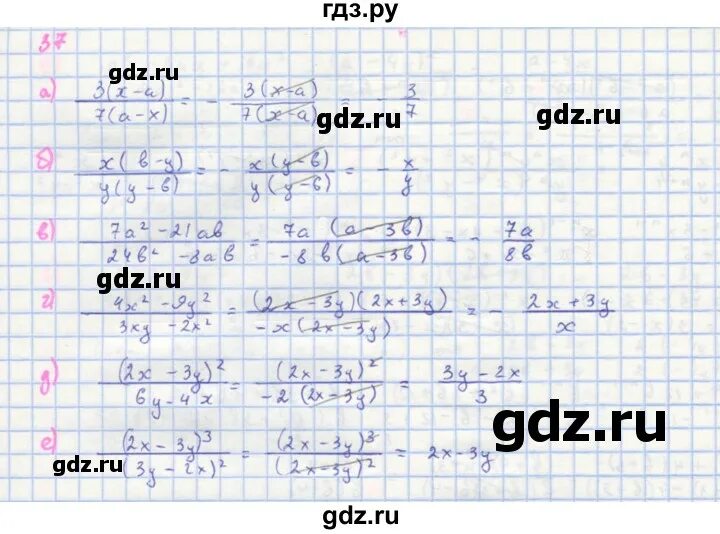 гдз.ру
37
gdz.ru
а) 3(x-a)/7(a-x) = - 3(x-a)/7(x-a) = - 3/7
gdz.ru
gdz.ru
б) x(b-y)/y(y-b) = - x(y-b)/y(y-b) = - x/y
в) 7a² - 21ab/24b² - 8ab = 7a (a-3b)/-8b(a-3b) = - 7a/8b
gdz.ru
г) 4x² - 9y²/3xy - 2x² = (2x-3y)(2x+3y)/-x(2x-3y) = - 2x+3y/x
д) (2x-3y)²/6y-4x = (2x-3y)²/-2(2x-3y) = 3y-2x/3
gdz.ru
е) (2x-3y)³/(3y-2x)² = (2x-3y)³/(2x-3y)² = 2x-3y
gdz.ru
gdz.ru